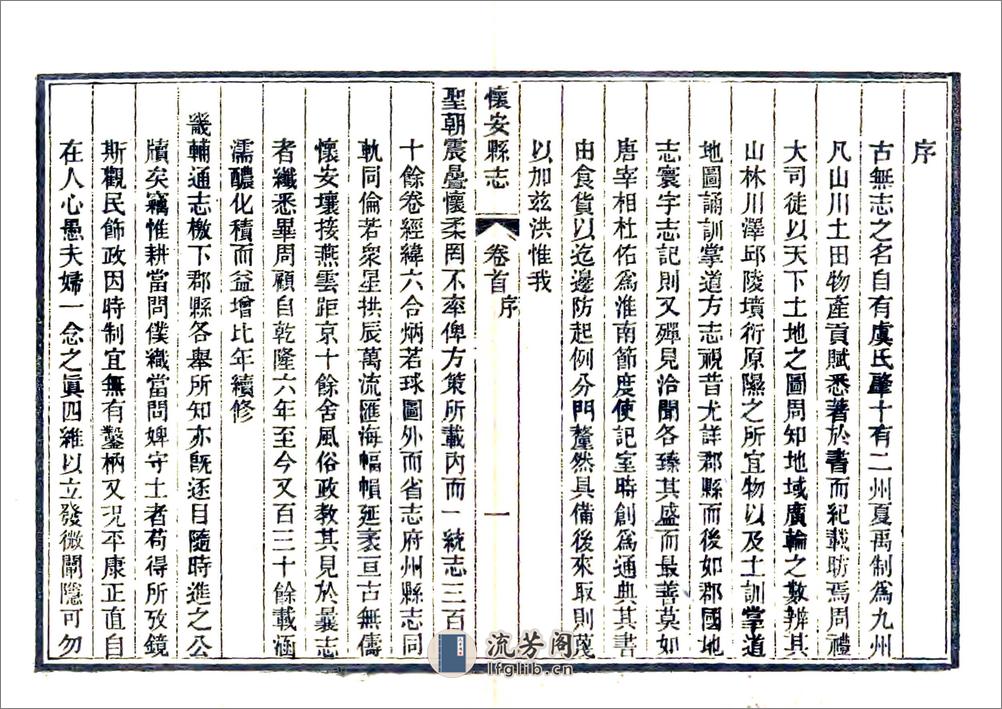 序
古無志之名自有虞氏肇十有二州夏禹制爲九州
凡山川土田物產貢賦悉著於書而紀載昉焉周禮
大司徒以天下土地之圖周知地域廣輪之數辨其
山林川澤邱陵墳衍原隰之所宜物以及土訓掌道
地圖誦訓掌道方志視昔尤詳郡縣而後如郡國地
志寰宇志記則又殫見洽聞各臻其盛而最善莫如
唐宰相杜佑爲淮南節度使記室時創爲通典其書
由食貨以迄邊防起例分門釐然具備後來取則蔑
以加茲洪惟我
懷安縣志 卷首 序 一
聖朝震疊懷柔罔不率俾方策所載內而一統志三百
十餘卷經緯六合炳若球圖外而省志府州縣志同
軌同倫若衆星拱辰萬流匯海幅幀延袤亘古無儔
懷安壤接燕雲距京十餘舍風俗政教其見於曩志
者纖悉畢周顧自乾隆六年至今又百三十餘載涵
濡醲化積而益增比年續修
畿輔通志檄下郡縣各舉所知亦旣逐目隨時進之公
牘矣竊惟耕當問僕織當問婢守土者苟得所攷鏡
斯觀民飭政因時制宜無有鑿枘又况平康正直自
在人心愚夫婦一念之眞四維以立發微闡隱可勿
流芳阁
lfglib.cn